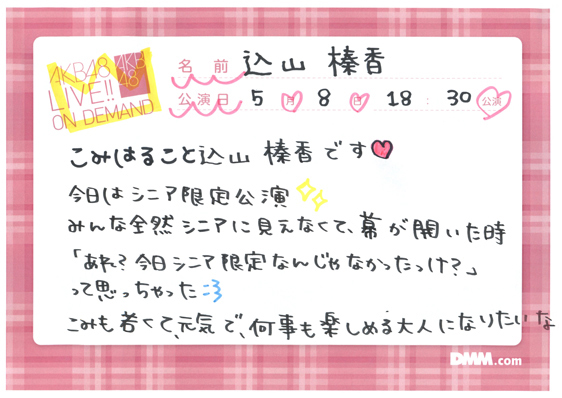 AKB48
LIVE!!
ON DEMAND
AKB
48
名前 込山 榛香
公演日 5月8日 18:30公演
こみはること込山 榛香です
今日はシニア限定公演
みんな全然シニアに見えなくて、幕が開いた時
「あれ?今日シニア限定なんじゃなかったっけ?」
って思っちゃった
こみも若くて、元気で、何事も楽しめる大人になりたいな
DMM.com